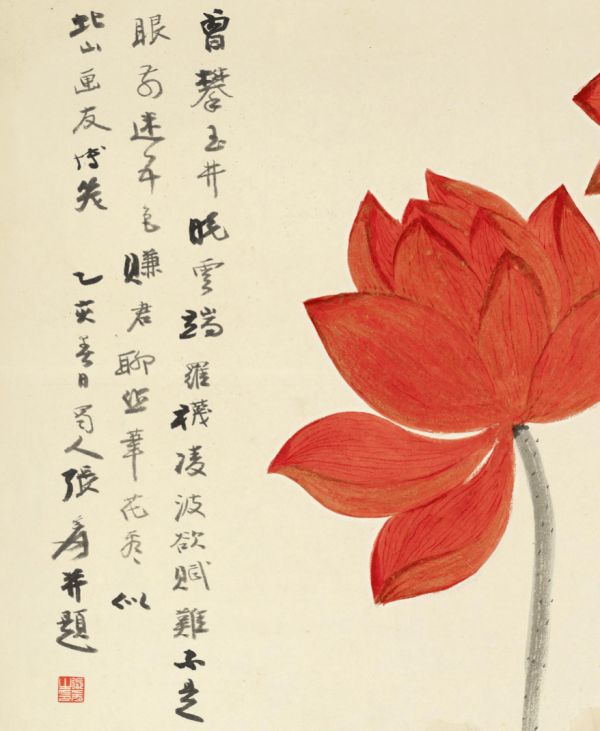 曾攀玉井曉雲端羅襪凌波欲賦難不是
眼前迷五色賺君聊筆花看似
北山画友博笑 乙亥春日蜀人張爰并題